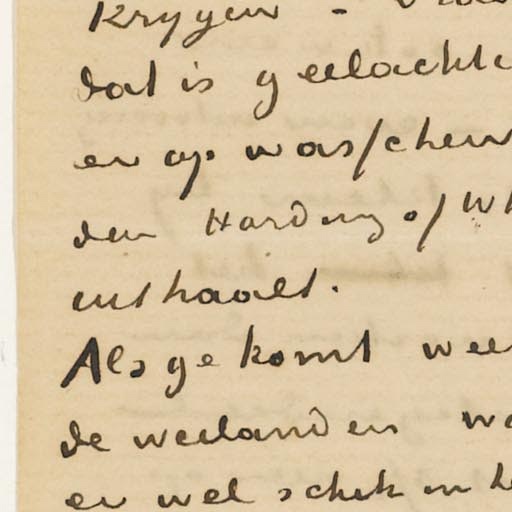 Krygen -
dat is geelachti
en op wasschen
den Harding of Wh
uithaalt.
Als ge komt wee
de weilanden wa
er wel schik in h